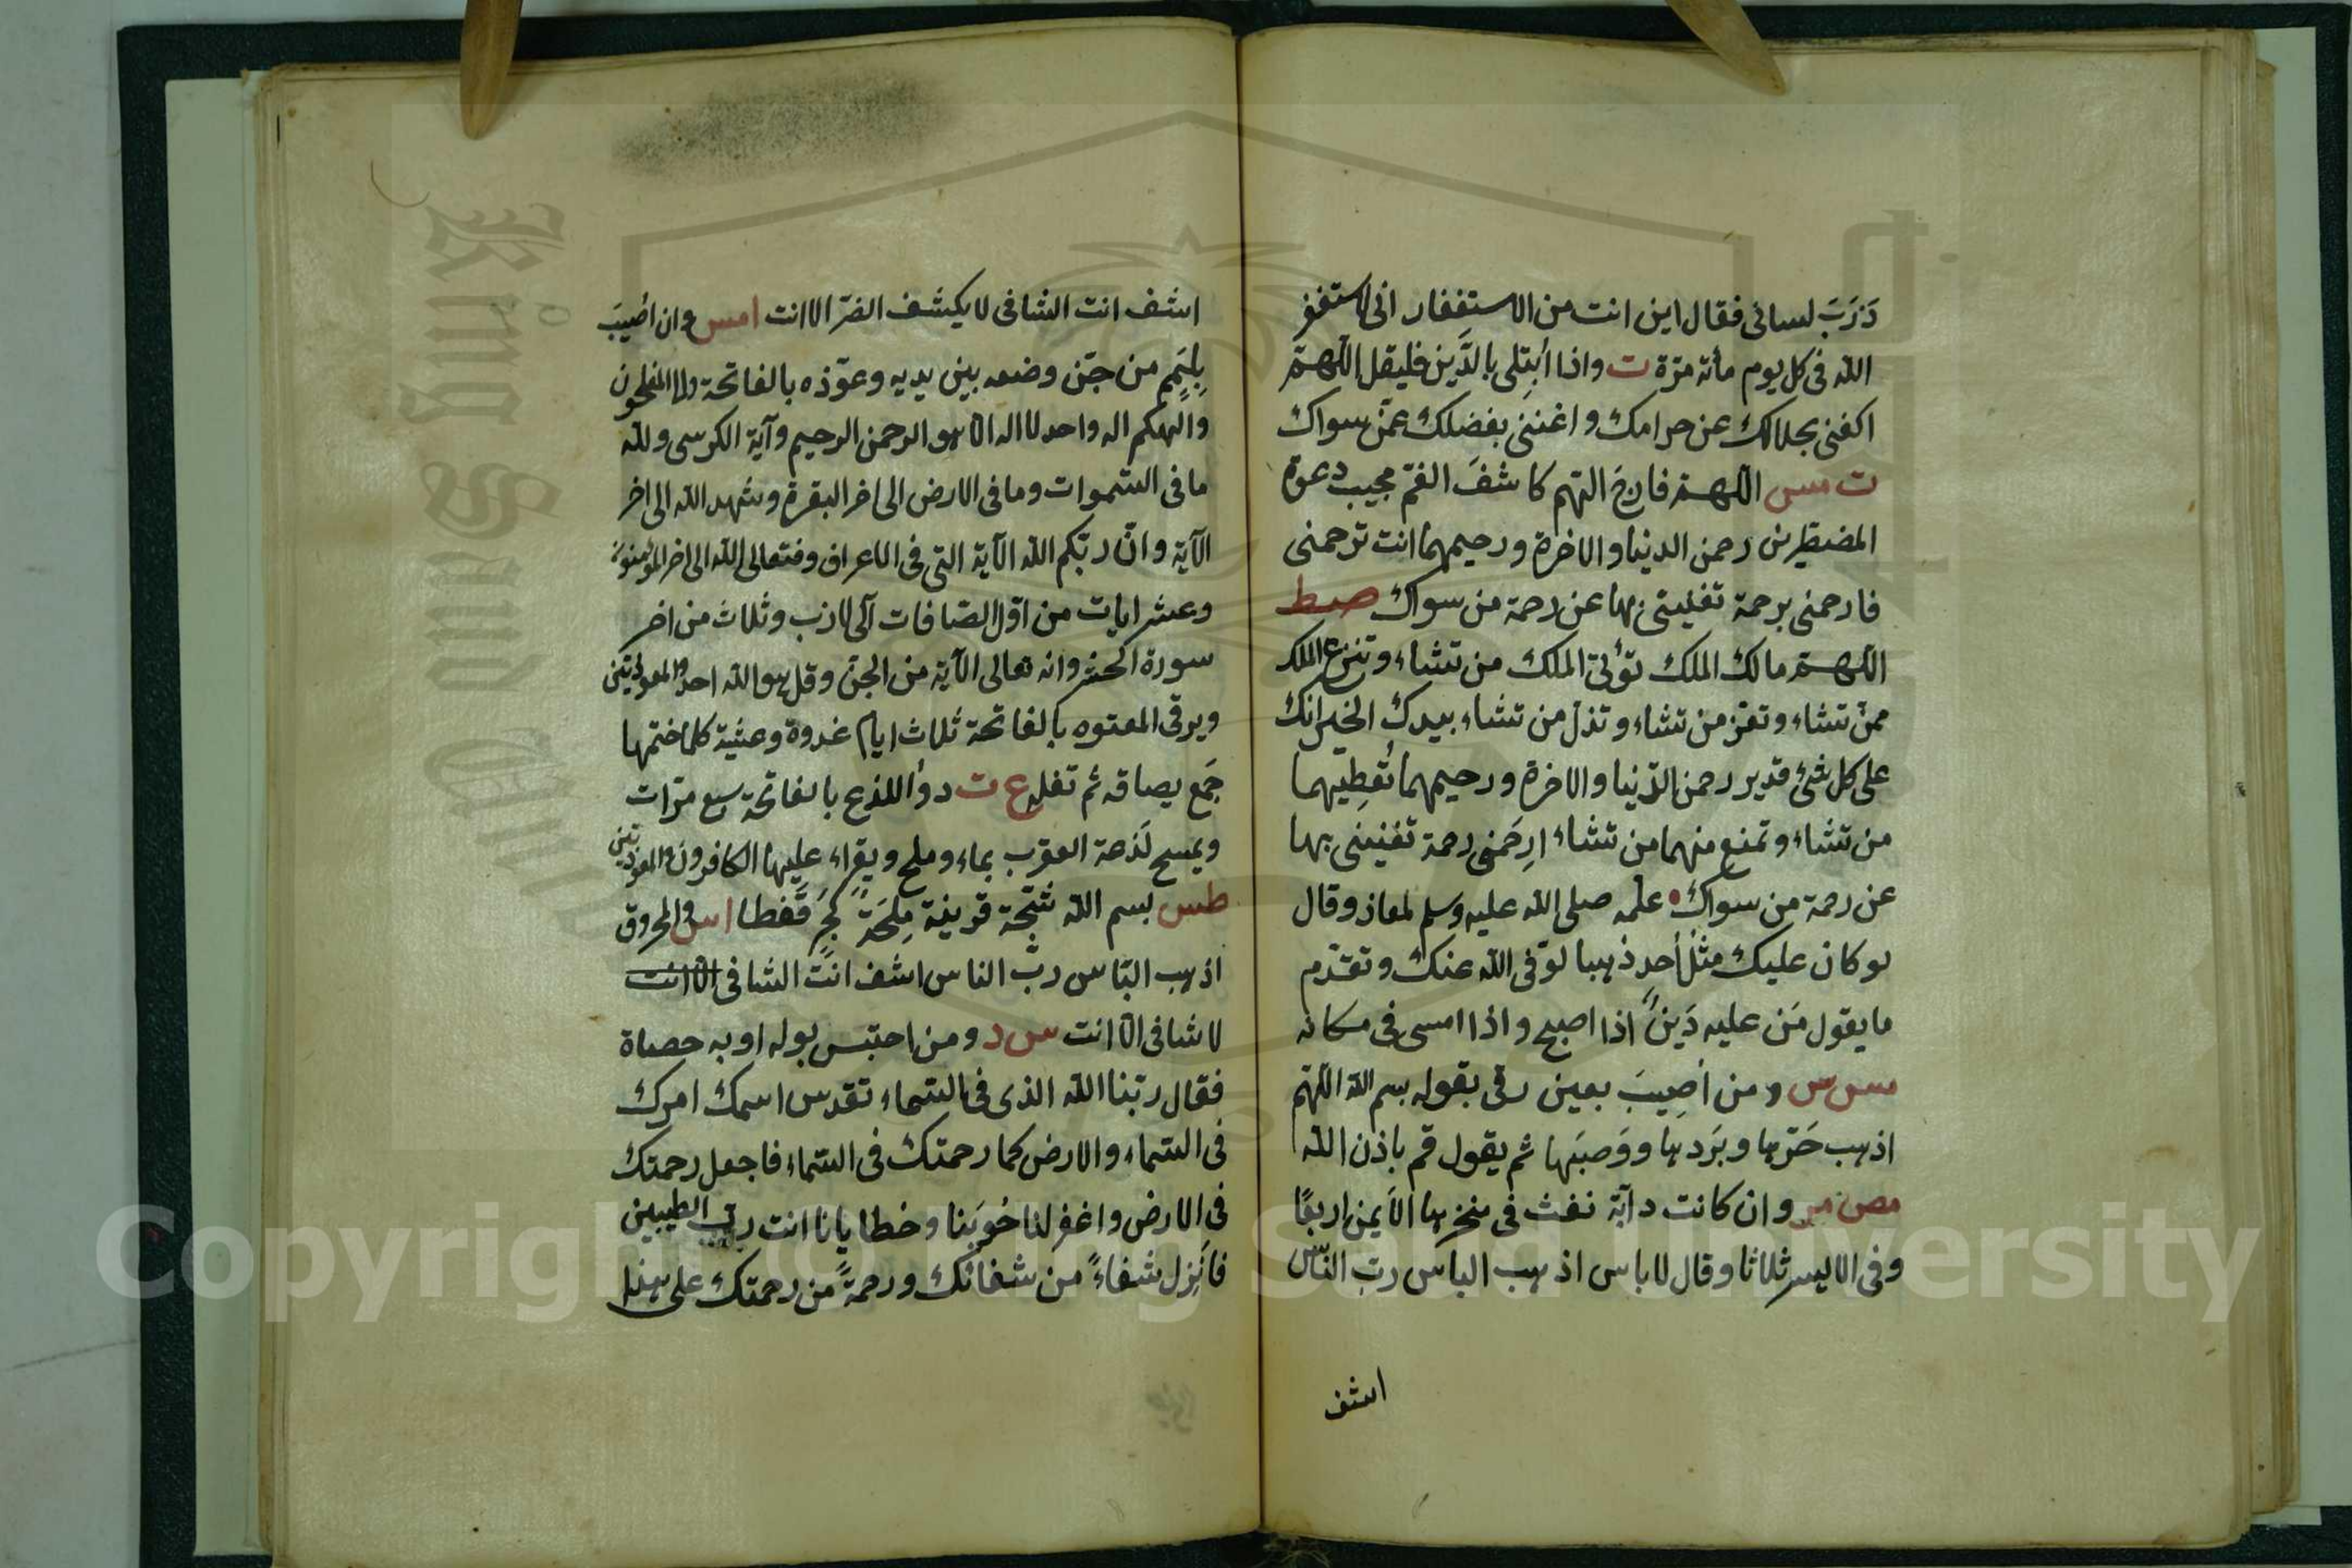 ذَرَبَ لسانى فقال اين انت من الاستغفار انى لاستغفر
الله فى كل يوم مأته مرّة ت واذا اُبتِلى بالدَّين فليقل اللهمّ
اكفنى بحلالك عن حرامك واغننى بفضلك عمّن سواك
ت مس اللهمّ فارجَ الهم كاشفَ الغمّ مجيب دعوة
المضطرين رحمن الدنيا والاخرة ورحيمهما انت ترحمنى
فارحمنى برحمة تغنينى بها عن رحمة من سواك صط
اللهمّ مالك الملك تؤتى الملك من تشاء وتنزع الملك
ممن تشاء وتعز من تشاء وتذل من تشاء بيدك الخير انك
على كل شئ قدير رحمن الدّنيا والاخرة ورحيمهما تُعطِيهما
من تشاء وتمنع منهما من تشاء ارِحَمنى رحمة تغنينى بها
عن رحمة من سواك علّمه صلى الله عليه وسلم لمعاذ وقال
لو كان عليك مثل اُحدٍ ذهبا لوفى الله عنك وتقدم
ما يقول مَن عليه دَينٌ اذا اصبح واذا امسى فى مكانه
مس س ومن اُصِيبَ بعين رقى بقوله بسم الله اللهم
اذهب حَرّها وبَردها ووَصبَها ثم يقول قم باذن الله
مص مر وان كانت دآبّة نفث فى منخرها الاَيمن اربعًا
وفى الايسر ثلاثا وقال لا باس اذهب الباس ربّ النّاس
اشف
اشف انت الشافى لا يكشف الضرّ الا انت امس وان اُصِيبَ
بِلَمَمٍ من جنّ وضعه بين يديه وعوّذه بالفاتحة والم المفلحون
والهكم اله واحد لا اله الا هو الرحمن الرحيم وآية الكرسى ولله
ما فى السّموات وما فى الارض الى اخر البقرة وشهد الله الى اخر
الآية وانّ ربّكم الله الآية التى فى الاعراف وفتعالى الله الى اخر المؤمنون
وعشر ايات من اوّل الصّافات الى لازب وثلاث من اخر
سورة الحشر وانه تعالى الآية من الجنّ وقل هو الله احد والمعوذتين
ويرقى المعتوه بالفاتحة ثلاث ايام غدوة وعشية كلما ختمها
جَمع بصاقه ثم تفله ت واللذيع بالفاتحة سبع مرّات
ويمسح لَذعة العقرب بماء وملح ويقراء عليها الكافرون والمعوذتين
طس بسم الله شَجّة قرينة مِلحَة بَحرٍ قَفطا اس والمحروق
اذهب البّاس ربّ الناس اشف انت الشافى الا انت
لا شافى الا انت س د ومن احتبس بوله او به حصاة
فقال ربّنا الله الذى فى السّماء تقدس اسمك امرك
فى السّماء والارض كما رحمتك فى السّماء فاجعل رحمتك
فى الارض واغفر لنا حُوبَنا وخطايانا انت ربّ الطيبين
فاَنزِل شفاءً من شفائك ورحمةً من رحمتك على هذا
King Saud University
Copyright © King Saud University